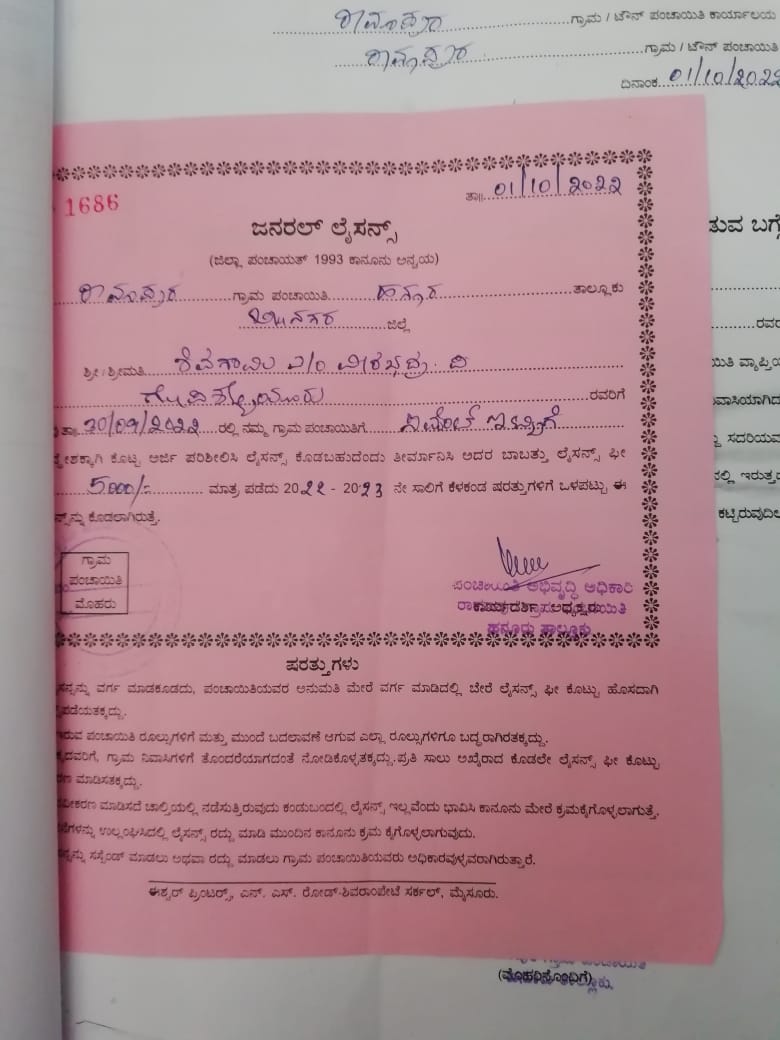 ರಾಮಾಪುರ ಗ್ರಾಮ / ಟೌನ್ ಪಂಚಾಯಿತಿ ಕಾರ್ಯಾಲಯ
ರಾಮಾಪುರ ಗ್ರಾಮ / ಟೌನ್ ಪಂಚಾಯಿತಿ
ದಿನಾಂಕ 01/10/2022
1686
ತಾ॥ 01/10/2022
ಜನರಲ್ ಲೈಸನ್ಸ್
ತುವ ಬಗ್ಗೆ
(ಜಿಲ್ಲಾ ಪಂಚಾಯತ್ 1993 ಕಾನೂನು ಅನ್ವಯ)
ರಾಮಾಪುರ ಗ್ರಾಮ ಪಂಚಾಯಿತಿ ಹನೂರ ತಾಲ್ಲೂಕು
ಚಾ.ನಗರ ಜಿಲ್ಲೆ
ರವರ
ಶ್ರೀ/ಶ್ರೀಮತಿ ಶಿವಗಾಮಿ
ಯಿತಿ ವ್ಯಾಪ್ತಿಯ
ರವರಿಗೆ
ವಾಸಿಯಾಗಿದ
ತಾ॥ 20/09/2022 ರಲ್ಲಿ ನಮ್ಮ ಗ್ರಾಮ ಪಂಚಾಯಿತಿಗೆ
ಸದರಿಯವ
ಕ್ಕಾಗಿ ಕೊಟ್ಟ ಅರ್ಜಿ ಪರಿಶೀಲಿಸಿ ಲೈಸನ್ಸ್ ಕೊಡಬಹುದೆಂದು ತೀರ್ಮಾನಿಸಿ ಅದರ ಬಾಬತ್ತು ಲೈಸನ್ಸ್ ಫೀ
ನಲ್ಲಿ ಇರುತ್ತದ
5000/- ಮಾತ್ರ ಪಡೆದು 2022 - 2023 ನೇ ಸಾಲಿಗೆ ಕೆಳಕಂಡ ಷರತ್ತುಗಳಿಗೆ ಒಳಪಟ್ಟು ಈ
ಕಟ್ಟಿರುವುದಿಲ
ನ್ಸ್‌ನ್ನು ಕೊಡಲಾಗಿರುತ್ತೆ.
ಗ್ರಾಮ
ಪಂಚಾಯಿತಿ
ಮೊಹರು
ಪಂಚಾಯಿತಿ ಅಭಿವೃದ್ಧಿ ಅಧಿಕಾರಿ
ಕಾರ್ಯದರ್ಶಿ ಅಧ್ಯಕ್ಷರು
ಹನೂರು ತಾಲ್ಲೂಕು
ಷರತ್ತುಗಳು
ಸನ್ಸನ್ನು ವರ್ಗ ಮಾಡಕೂಡದು, ಪಂಚಾಯಿತಿಯವರ ಅನುಮತಿ ಮೇರೆ ವರ್ಗ ಮಾಡಿದಲ್ಲಿ ಬೇರೆ ಲೈಸನ್ಸ್ ಫೀ ಕೊಟ್ಟು ಹೊಸದಾಗಿ
ಪಡೆಯತಕ್ಕದ್ದು.
ಇರುವ ಪಂಚಾಯಿತಿ ರೂಲ್ಸುಗಳಿಗೆ ಮತ್ತು ಮುಂದೆ ಬದಲಾವಣೆ ಆಗುವ ಎಲ್ಲಾ ರೂಲ್ಸುಗಳಿಗೂ ಬದ್ಧರಾಗಿರತಕ್ಕದ್ದು.
ಕ್ಕದವರಿಗೆ, ಗ್ರಾಮ ನಿವಾಸಿಗಳಿಗೆ ತೊಂದರೆಯಾಗದಂತೆ ನೋಡಿಕೊಳ್ಳತಕ್ಕದ್ದು.ಪ್ರತಿ ಸಾಲು ಅಖೈರಾದ ಕೂಡಲೇ ಲೈಸನ್ಸ್ ಫೀ ಕೊಟ್ಟು
ರಣ ಮಾಡಿಸತಕ್ಕದ್ದು.
ನವೀಕರಣ ಮಾಡಿಸದೆ ಚಾಲ್ತಿಯಲ್ಲಿ ನಡೆಸುತ್ತಿರುವುದು ಕಂಡುಬಂದಲ್ಲಿ ಲೈಸನ್ಸ್ ಇಲ್ಲವೆಂದು ಭಾವಿಸಿ ಕಾನೂನು ಮೇರೆ ಕ್ರಮಕೈಗೊಳ್ಳಲಾಗುತ್ತೆ.
ಗಳನ್ನು ಉಲ್ಲಂಘಿಸಿದಲ್ಲಿ ಲೈಸನ್ಸ್ ರದ್ದು ಮಾಡಿ ಮುಂದಿನ ಕಾನೂನು ಕ್ರಮ ಕೈಗೊಳ್ಳಲಾಗುವುದು.
ನ್ಸನ್ನು ಸಸ್ಪೆಂಡ್ ಮಾಡಲು ಅಥವಾ ರದ್ದು ಮಾಡಲು ಗ್ರಾಮ ಪಂಚಾಯಿತಿಯವರು ಅಧಿಕಾರವುಳ್ಳವರಾಗಿರುತ್ತಾರೆ.
ಈಶ್ವರ್ ಪ್ರಿಂಟರ್ಸ್, ಎನ್. ಎಸ್. ರೋಡ್-ಶಿವರಾಂಪೇಟೆ ಸರ್ಕಲ್, ಮೈಸೂರು.
(ಮೊಹರಿನೊಂದಿಗೆ)